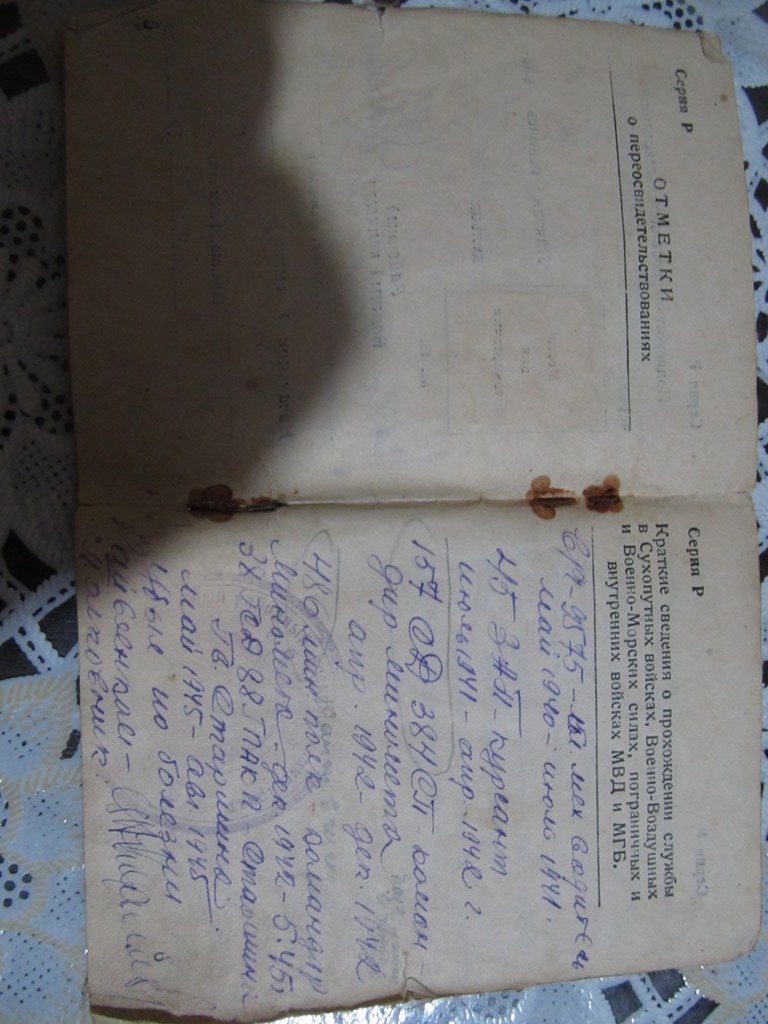 Серия Р
ОТМЕТКИ
о переосвидетельствованиях
Серия Р
Краткие сведения о прохождении службы
в Сухопутных войсках, Военно-Воздушных
и Военно-Морских силах, пограничных и
внутренних войсках МВД и МГБ.
9575 - мех водитель
май 1940 - июль 1941.
215 ЗАП - курсант
июль 1941 - апр. 1942 г.
157 СД 384 СП - коман-
дир миномета
апр 1942 - дек. 1942
486 мин полк - командир
миномета - дек 1942 - 5.45
Старшина
Гв Старшина
май 1945 - авг 1945
убыл по болезни
Полковник